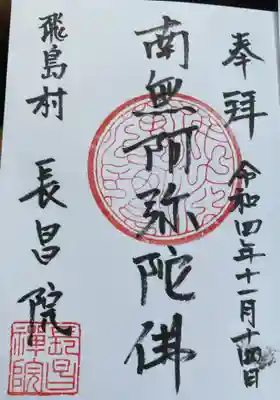 奉拝 令和四年十一月十四日
南無阿弥陀佛
飛島村 長昌院
長昌禅院